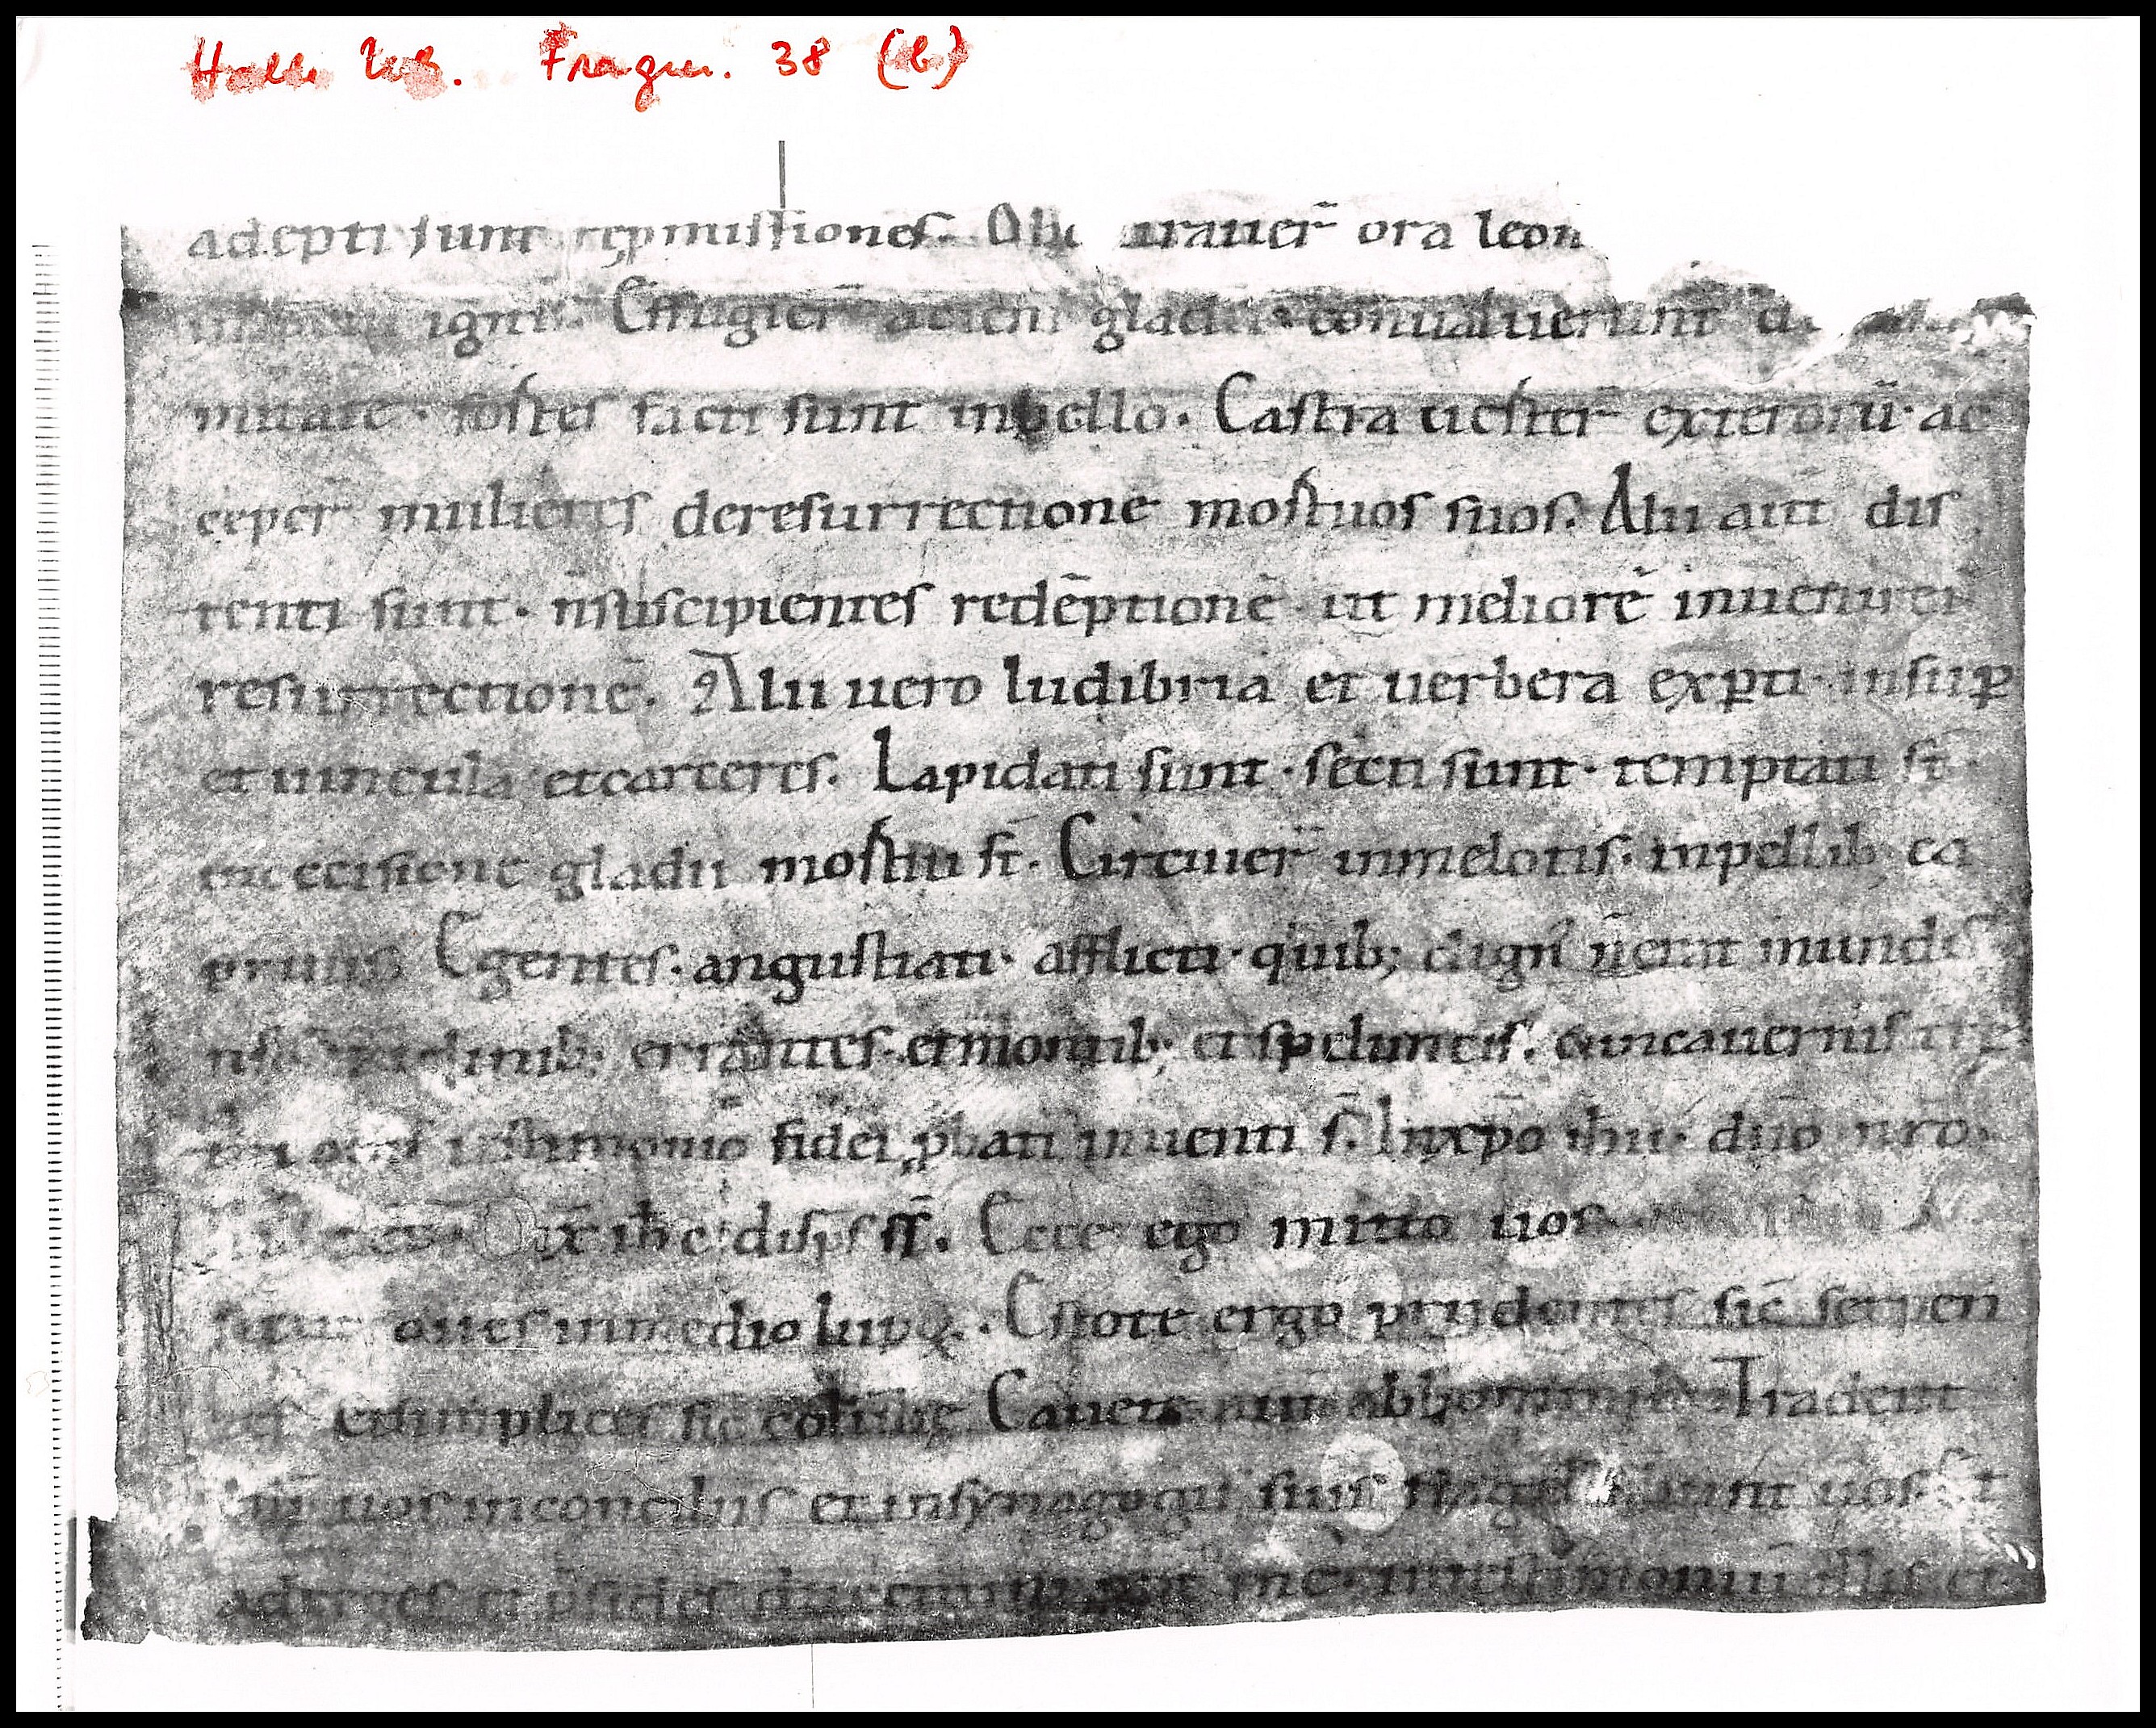 Halle UB. Fragm. 38 (b)
adepti sunt repmissiones. Ob uraueř ora leon
igniſ. Effugieř aciem gladii. conualuerunt de
mitate. fortes facti sunt inbello. Castra uerteř exteroꝝ̄. ac
ceper̄ mulieres deresurrectione mortuos suos. Alii aūt dis
tenti sunt. n̄suscipientes redēptionē. ut meliorē inuenireň
resurrectionē. Alii uero ludibria et uerbera exꝑti. insuꝑ
et uincula etcarceres. Lapidati sunt. secti sunt. temptati st̄.
inoccisione gladii mortui st̄. Circuier̄ inmelotis. inpellib; ca
prinis Egentes. angustiati. afflicti. quib; dign̄ n̄erat mundus
errantes. etmontib; et speluncis. etincauernis
testimonio fidei ꝓbati inuenti s̄. Inxp̄o ih̄u. dn̄o nr̄o.
Dix̄ ih̄c disp̄ sſ. Ecce ego mitto uos
sicut oues inmedio lupoꝝ. Estote ergo prudentes sic̄ serpen
etsimplices sic̄ colūbę Cauete aūt abhominib; Tradent
uos inconciliis et insynagogis suis flagellabunt uos. Et
ad reges et p̄sides ducemini me. intestimoniū illis et